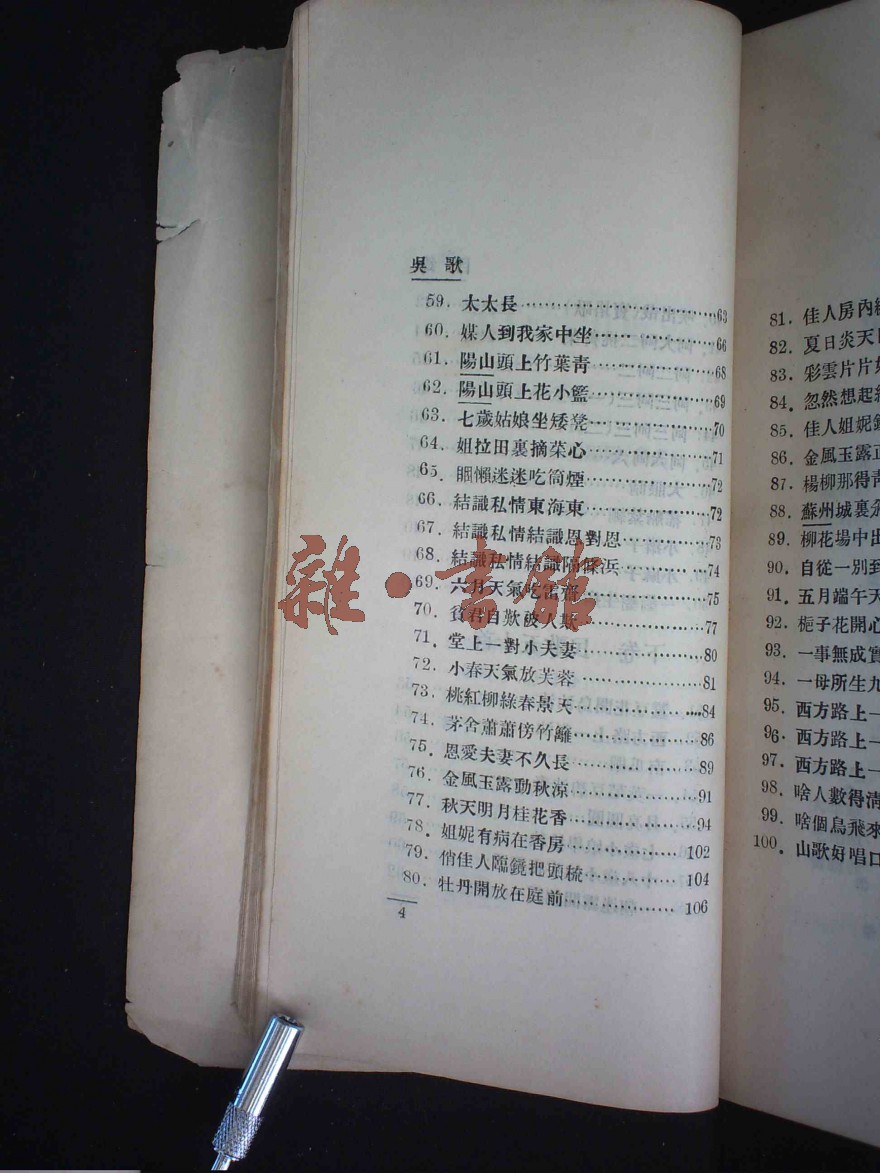 吳歌
59. 太太長……63
60. 媒人到我家中坐……66
61. 陽山頭上竹葉靑……68
62. 陽山頭上花小籃……69
63. 七歲姑娘坐矮凳……70
64. 姐拉田裏摘菜心……71
65. 瞓懶迷迷吃筒煙……72
66. 結識私情東海東……72
67. 結識私情結識恩對恩……73
68. 結識私情結識隔條浜……74
69. 六月天氣吃雷齋……75
70. 貧君自歎被人欺……77
71. 堂上一對小夫妻……80
72. 小春天氣放芙蓉……81
73. 桃紅柳綠春景天……84
74. 茅舍蕭蕭傍竹籬……86
75. 恩愛夫妻不久長……89
76. 金風玉露動秋涼……91
77. 秋天明月桂花香……94
78. 姐妮有病在香房……102
79. 俏佳人臨鏡把頭梳……104
80. 牡丹開放在庭前……106
4
81. 佳人房內
82. 夏日炎天
83. 彩雲片片
84. 忽然想起
85. 佳人姐妮
86. 金風玉露
87. 楊柳那得
88. 蘇州城裏
89. 柳花場中
90. 自從一別
91. 五月端午
92. 梔子花開
93. 一事無成
94. 一母所生
95. 西方路上
96. 西方路上
97. 西方路上
98. 啥人數得
99. 啥個鳥飛
100. 山歌好唱
雜·書館